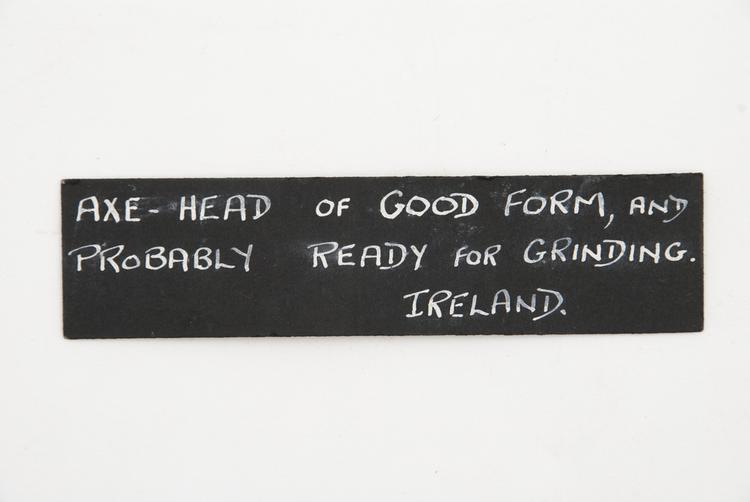 AXE-HEAD OF GOOD FORM, AND
PROBABLY READY FOR GRINDING.
IRELAND.